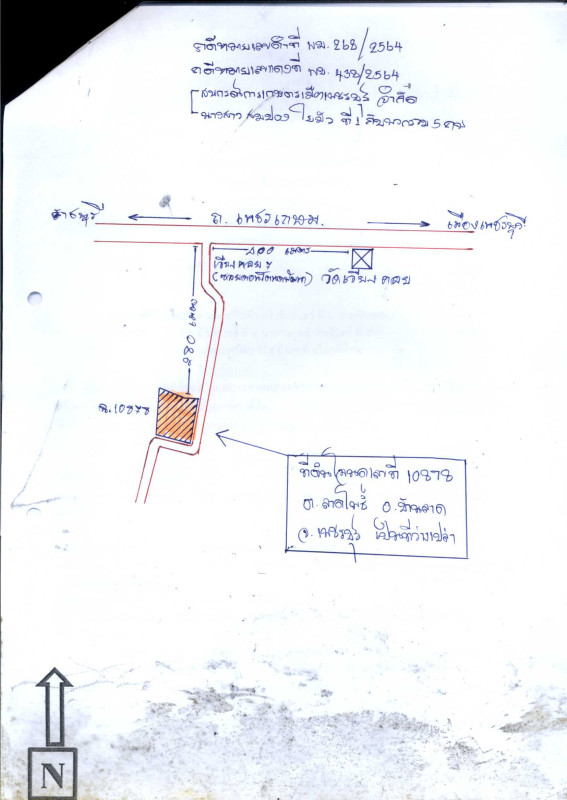 คดีหมายเลขดำที่ ผบ. 268/2564
คดีหมายเลขแดงที่ ผบ. 432/2564
สหกรณ์การเกษตรเมืองเพชรบุรี จำกัด
นางสาว ที่ 1 กับพวกรวม 5 คน
ราชบุรี
ถ. เพชรเกษม
เมืองเพชรบุรี
400 เมตร
เวียงคอย
วัดเวียงคอย
280 เมตร
ฉ.10878
ที่ดินโฉนดเลขที่ 10878
ต. ลาดโพธิ์ อ. บ้านลาด
จ. เพชรบุรี เป็นที่ว่างเปล่า
N